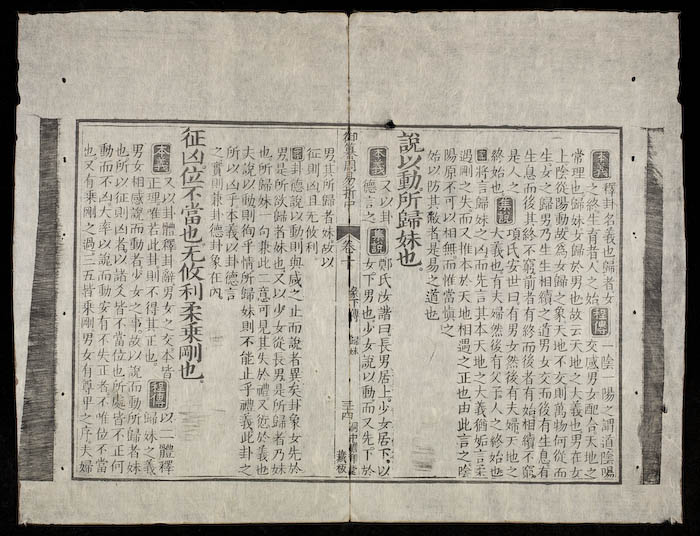 本義釋卦名義也歸者女程傳一陰一陽之謂道陰陽
之終生育者人之始交感男女配合天地之
常理也歸妹女歸於男也故云天地之大義也男在女
上陰從陽動故為女歸之象天地不交則萬物何從而
生女之歸男乃生生相續之道男女交而後有生息有
生息而後其終不窮前者有終而後者有始相續不窮
是人之集說項氏安世曰有男女然後有夫婦天地之
終始也大義也有夫婦然後有父子人之終始也
案將言歸妹之凶而先言其本天地之大義猶姤言柔
過剛之失而又推本於天地相遇之正也由此言之陰
陽原不可以相無而惟當慎之
始以防其敝者是易之道也
說以動所歸妹也
本義又以卦集說鄭氏汝諧曰長男居上少女居下以
德言之女下男也少女說以動而又先下於
御纂周易折中 卷十 彖下傳 歸妹 三四
男其所歸者妹故以
征則凶且无攸利
案卦德說以動則與咸之止而說者異矣卦象女先於
男是所歸者妹也又以少女從長男是所歸者乃妹
也所歸妹一句兼此二意可見其失於禮又愆於義也
夫說以動則徇乎情所歸妹則不能止乎禮義此卦之
所以凶乎本義以卦德言
之實則兼卦德卦象在內
征凶位不當也无攸利柔乘剛也
本義又以卦體釋卦辭男女之交本皆程傳以二體釋
正理惟若此卦則不得其正也歸妹之義
男女相感說而動者少女之事故以說而動所歸者妹
也所以征則凶者以諸爻皆不當位也所處皆不正何
動而不凶大率以說而動安有不失正者不惟位不當
也又有乘剛之過三五皆乘剛男女有尊卑之序夫婦